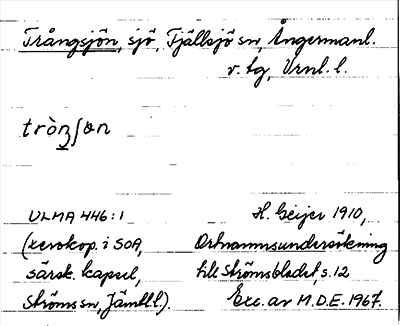 Trångsjön, sjö, Fjällsjö sn, Ångermanl.
v. tg, Vrnl. l.
tròŋʃøn
ULMA 446:1 H. Geijer 1910,
(xerokop. i SOA, Ortnamnsundersökning
särsk. kapsel, till Strömsbladet, s. 12
Ströms sn, Jämtl.l.). Exc. av M.D.E. 1967.